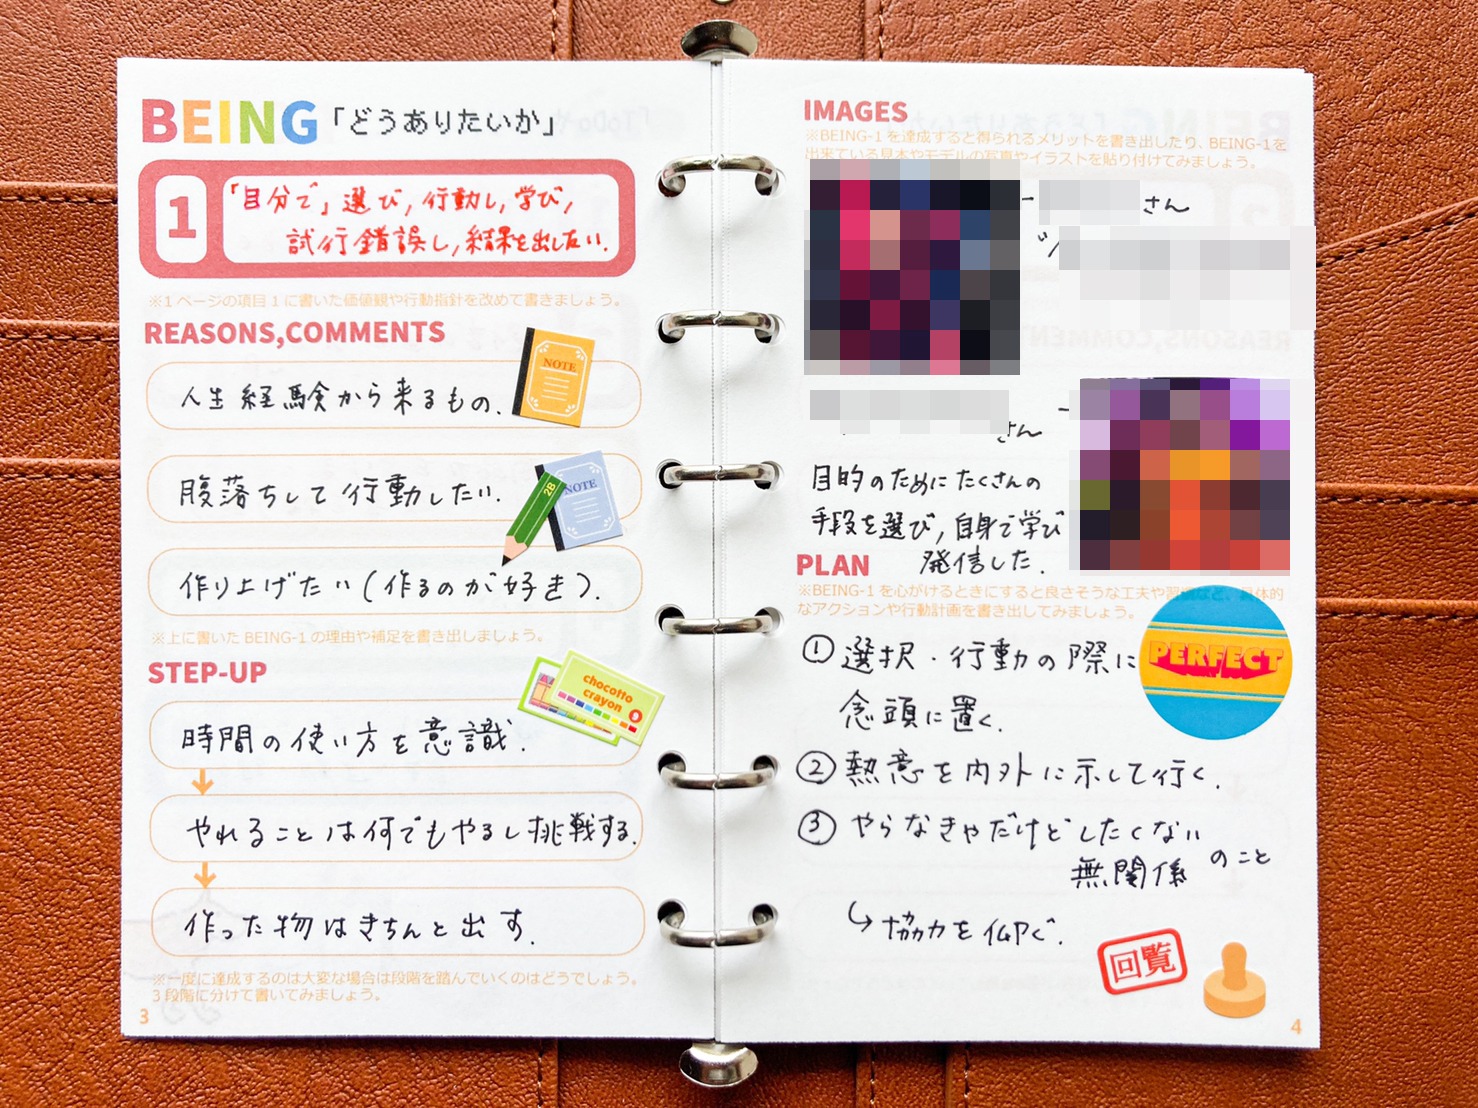 BEING「どうありたいか」
1
「自分で」選び,行動し,学び,
試行錯誤し,結果を出したい.
※1ページの項目1に書いた価値観や行動指針を改めて書きましょう。
REASONS,COMMENTS
人生経験から来るもの.
NOTE
腹落ちして行動したい.
2B
NOTE
作り上げたい(作るのが好き).
※上に書いたBEING-1の理由や補足を書き出しましょう。
STEP-UP
chocotto
crayon
時間の使い方を意識.
やれることは何でもやるし挑戦する.
作った物はきちんと出す.
※一度に達成するのは大変な場合は段階を踏んでいくのはどうでしょう。
3段階に分けて書いてみましょう。
3
IMAGES
※BEING-1を達成すると得られるメリットを書き出したり、BEING-1を
出来ている見本やモデルの写真やイラストを貼り付けてみましょう。
さん
さん
目的のためにたくさんの
手段を選び,自身で学び
発信した.
PLAN
※BEING-1を心がけるときにすると良さそうな工夫や習慣など、具体的
なアクションや行動計画を書き出してみましょう。
PERFECT
①選択・行動の際に
念頭に置く.
②熱意を内外に示して行く.
③やらなきゃだけどしたくない
無関係のこと
↳協力を仰ぐ.
回覧
4